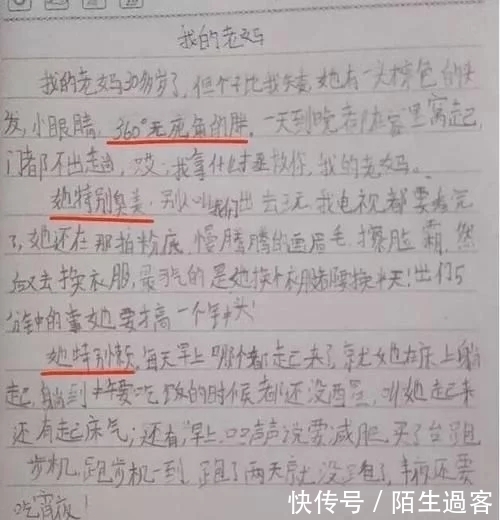 我的老妈
我的老妈30多岁了,但个子比我矮,她有一头棕色的头
发,小眼睛,360°无死角的胖,一天到晚老在家里窝起,
门都不出去趟,哎,我拿什么拯救你,我的老妈。
她特别臭美,别人叫我们出去玩,我电视都要看完
了,她还在那拍粉底,慢腾腾的画眉毛,擦脸霜,然
后又去换衣服,最可气的是她换个衣服都要换半天!出门5
分钟的事她要搞一个钟头!
她特别懒,每天早上哪个都起来了,就她在床上躺
起,躺到中午要吃饭的时候都还没醒,叫她起来
还有起床气;还有,早上口口声声说要减肥,买了台跑
步机,跑步机一到,跑了两天就没跑了,半夜还要
吃宵夜!
快传号/陌生過客